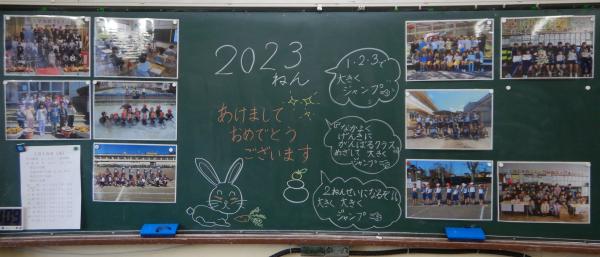 2023
ねん
あけまして
おめでとう
ございます
1・2・3で
大きく
ジャンプ
なかよく
げんきに
がんばるクラス
めざして 大きく
ジャンプ
2ねんせいになるぞ!!
大きく 大きく
ジャンプ